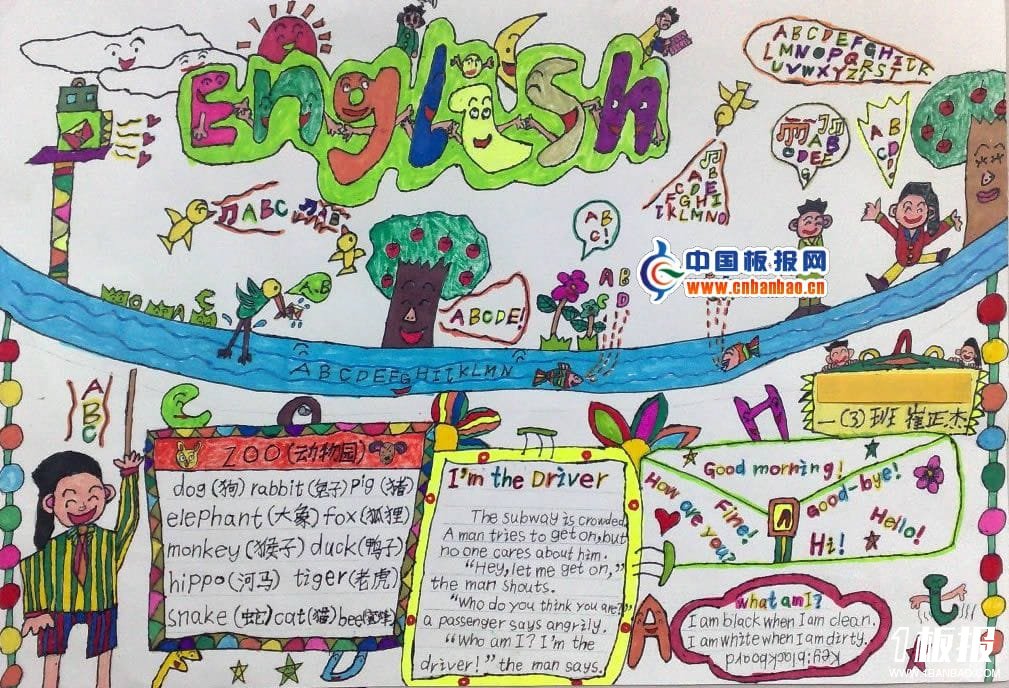 English
ABCDEFG
LMNOP
ABC
ABCDE!
AB
C!
ABD
AB
CDEF
G
AB
CD
!
中国板报网
www.cnbanbao.cn
ABCDEFGHIJKLMN
一(3)班 崔正杰
ABC
ZOO(动物园)
dog(狗) rabbit(兔子) pig(猪)
elephant(大象) fox(狐狸)
monkey(猴子) duck(鸭子)
hippo(河马) tiger(老虎)
snake(蛇) cat(猫) bee
I'm the Driver
The subway is crowded,
A man tries to get on, but
no one cares about him.
"Hey, let me get on,"
the man shouts.
"Who do you think you are?"
a passenger says angrily.
"Who am I? I'm the
driver!" the man says.
Good morning!
How are you?
Fine!
Good-bye!
Hello!
Hi!
what am I?
I am black when I am clean.
I am white when I am dirty.
Key: blackboard
板报
WWW.4BANBAO.COM